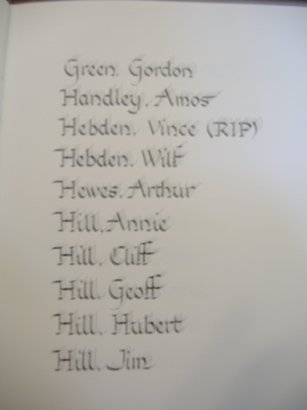 Green. Gordon
Handley. Amos
Hebden. Vince (RIP)
Hebden. Wilf
Hewes. Arthur
Hill. Annie
Hill. Cliff
Hill. Geoff
Hill. Hubert
Hill. Jim